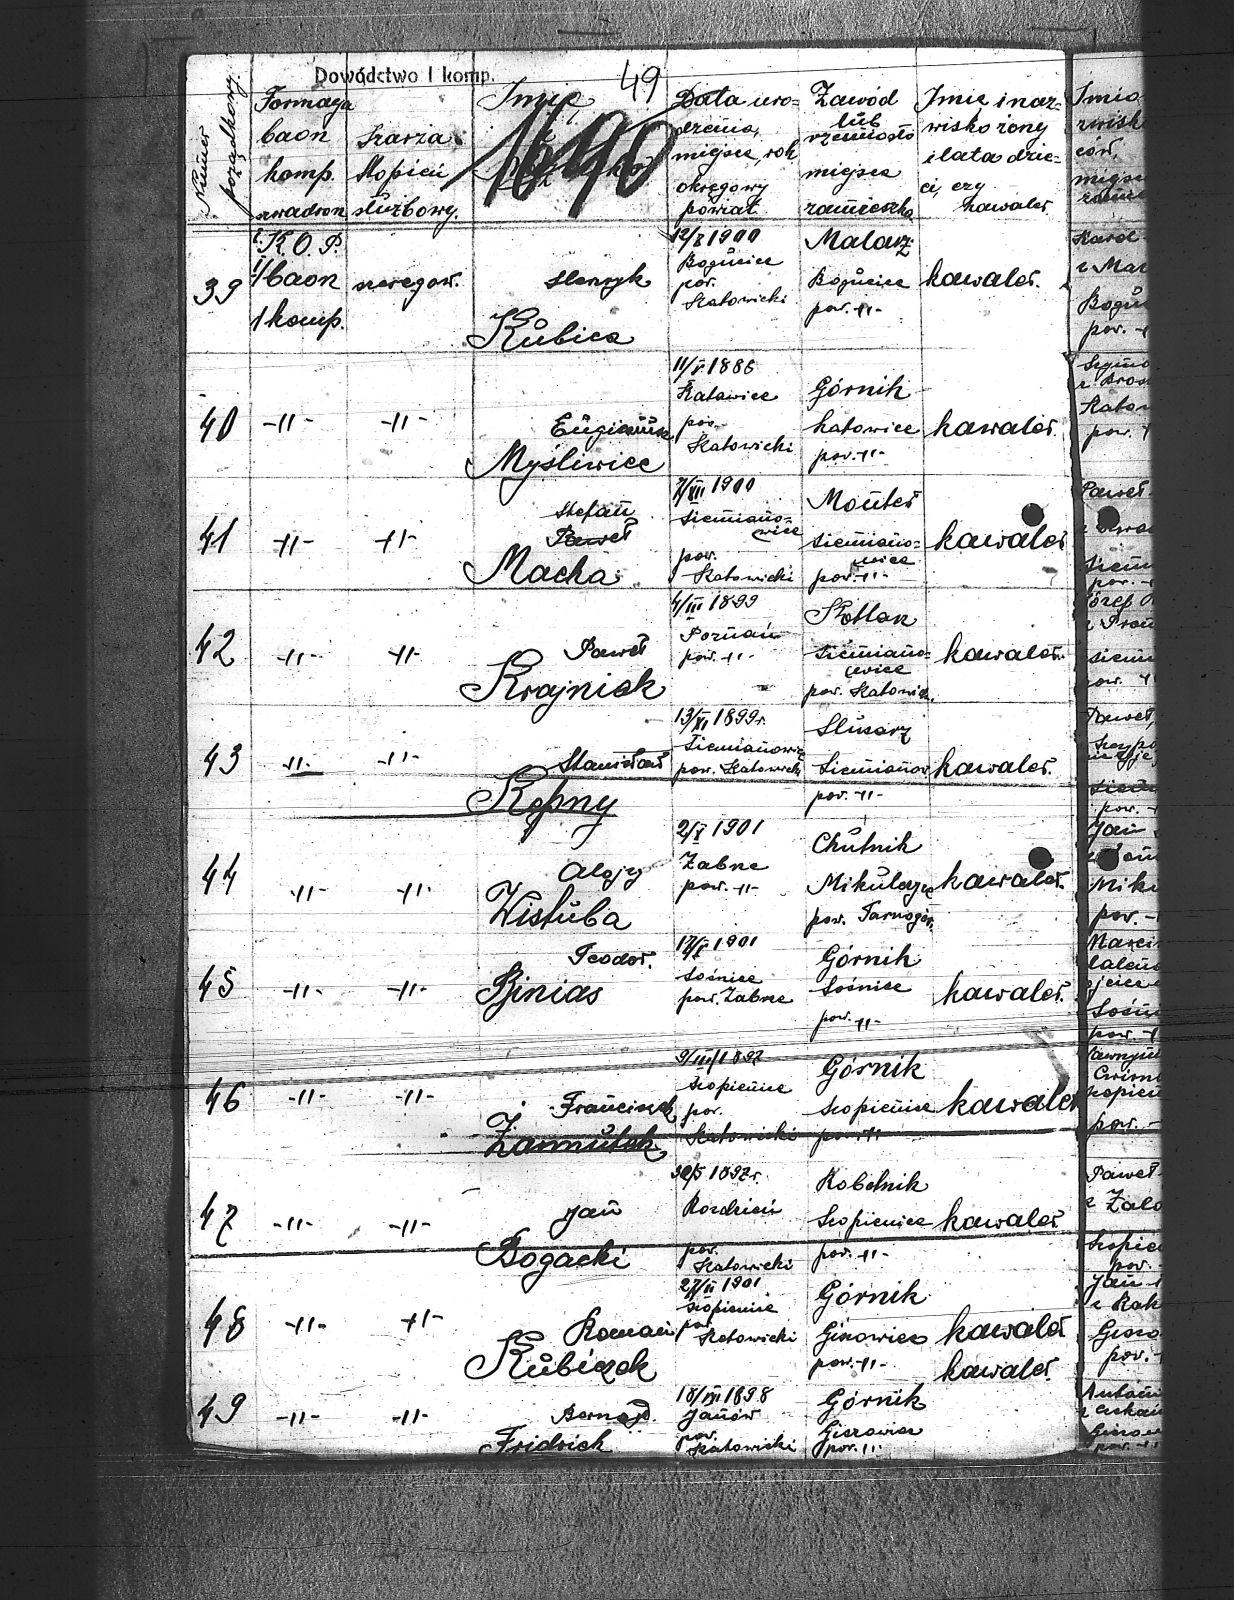 Dowództwo I komp. 49
1640
Numer porządkowy.
Formacja
baon
komp.
szwadron
Szarża
Stopień
służbowy.
Imię,
Data uro-
dzenia,
miejsce, rok
okręgowy
powiat
Zawód
lub
rzemiosło
miejsce
zamieszka
Imię i naz-
wisko żony
i lata dzie-
ci, czy
kawaler
Imio
zwisk
ców,
miejsc
39
K. O. P.
1/baon
1 komp.
szeregow.
Henryk
Kubica
12/8 1900
Bogucice
pow.
Katowicki
Malarz
Bogucice
pow. -11-
kawaler.
Karol
z Mar
Bogu
pow. -1
40 -11- -11-
Eugieniusz
Myśliwiec
11/V 1886
Katowice
pow.
Katowicki
Górnik
Katowice
pow. -11-
kawaler.
Szymo
Katow
pow.
41 -11- -11-
Stefan
Paweł
Macha
7/XII 1900
Siemiano-
wice
pow.
Katowicki
Monter
Siemiano-
wice
pow. -11-
kawaler
Paweł
Siem
pow.
42 -11- -11-
Paweł
Krajniok
4/III 1899
Poznań
pow. -11-
Kotlarz
Siemiano-
wice
pow. Katowick.
kawaler.
Józef
Siemi
pow. -11
43 -11- -11-
Stanisław
Kopny
13/XI 1899r.
Siemianowice
pow. Katowicki
Ślusarz
Siemianow
pow. -11-
kawaler.
Paweł,
pow.
44 -11- -11-
Alojzy
Wistuba
2/V 1901
Zabrze
pow. -11-
Chutnik
Mikulczyce
pow. Tarnogór.
kawaler.
Jan
Miku
pow. -1
45 -11- -11-
Teodor.
Binias
17/V 1901
Sośnice
pow. Zabrze
Górnik
Sośnice
pow. -11-
kawaler.
Marcin
Sośni
pow. -1
46 -11- -11-
Franciszek
Żarmutek
9/III/1897
Szopienice
pow.
Katowicki
Górnik
Szopienice
pow. -11-
kawaler
Szopien
pow. -
47 -11- -11-
Jan
Bogacki
30/5 1897r.
Rozdzień
pow.
Katowicki
Robotnik
Szopienice
pow. -11-
kawaler
Paweł
z Zalo
Szopie
pow.
48 -11- -11-
Roman
Kubiczek
27/II 1901
Szopienice
pow
Katowicki
Górnik
Giszowiec
pow. -11-
kawaler
kawaler.
Jan
z Kak
Giszo
pow. -
49 -11- -11-
Bernard
Fridrich
18/VII 1898
Janów
pow.
Katowicki
Górnik
Giszowiec
pow. 11-
Antoni
Giszow
pow. -11